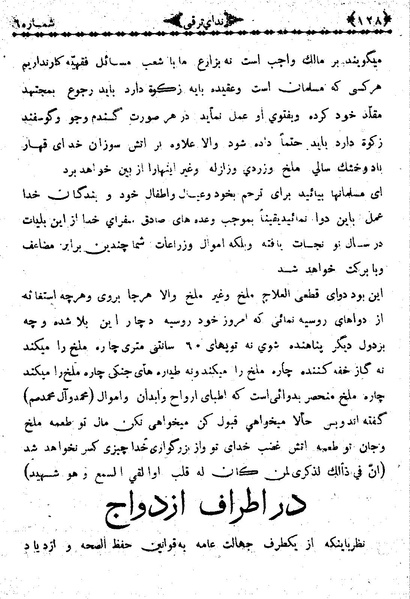 ﴿۱۲۸﴾ ﴿ندای ترقی﴾ شماره ۶
میگویند بر مالك واجب است نه بزارع ما با شعب مسائل فقهیّه کارنداریم
هرکسی که مسلمان است وعقیده بایه زکوة دارد باید رجوع بمجتهد
مقلّد خود کرده وبفتوی او عمل نمآید در هر صورت گندم وجو وگوسفند
زکوة دارد باید حتماً داده شود والا علاوه بر اتش سوزان خدای قهار
باد وخشك سالی ملخ وزردی وزلزله وغیر اینهارا از بین خواهد برد
ای مسلمانها بیائید برای ترحم بخود وعیال واطفال خود و بندگان خدا
عمل باین دوا نمائید یقیناً بموجب وعده های صادق سفرای خدا از این بلیات
در سال نو نجات یافته وبلکه اموال وزراعات شما چندین برابر مضاعف
وبا برکت خواهد شد
این بود دوای قطعی العلاج ملخ وغیر ملخ والا هرجا بروی وهرچه استغاثه
از دواهای روسیه نمائی که امروز خود روسیه دچار این بلا شده و چه
بزدول دیگر پناهنده شوی نه توپهای ۶۰ سانتی متری چاره ملخ را میکند
نه گاز خفه کننده چاره ملخ را میکند ونه طیاره های جنکی چاره ملخ را میکند
چاره ملخ منحصر بدوائی است که اطبای ارواح وابدأن واموال (محمد وآل محمد صم)
گفته اند وبس حآلا میخواهی قبول کن میخواهی نکن مال تو طعمه ملخ
وجان تو طعمه اتش غضب خدای تو واز بزرگواری خدا چیزی کسر نخواهد شد
(انّ في ذألك لذكرى لمن كأن له قلب اوالقي السمع و هو شهيد)
در اطراف ازدواج
نظرباینکه از یکطرف جهالت عامه به قوانین حفظ الصحه و ازدیاد